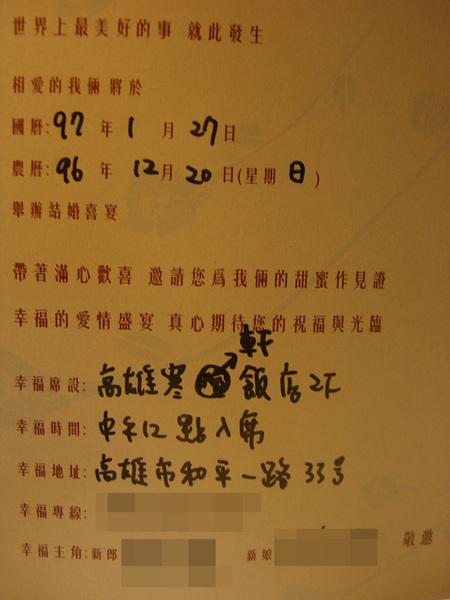 世界上最美好的事 就此發生
相愛的我倆將於
國曆:97年1月27日
農曆:96年12月20日(星期日)
舉辦結婚喜宴
帶著滿心歡喜 邀請您爲我倆的甜蜜作見證
幸福的愛情盛宴 真心期待您的祝福與光臨
幸福席設:高雄寒軒飯店2F
幸福時間:中午12點入席
幸福地址:高雄市和平一路33号
幸福專線:
幸福主角:新郎 新娘 敬邀